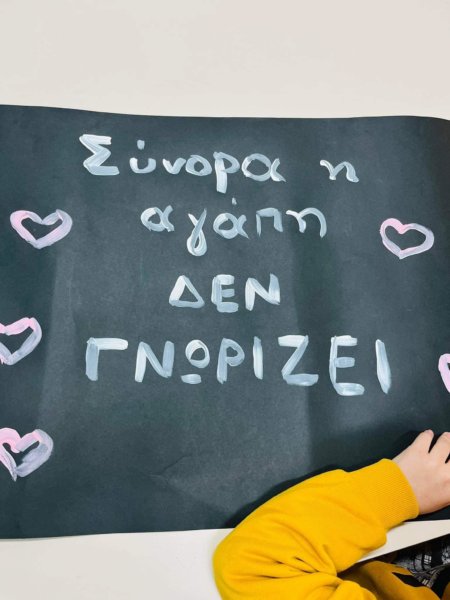 Σύνορα η
αγάπη
ΔΕΝ
ΓΝΩΡΙΖΕΙ